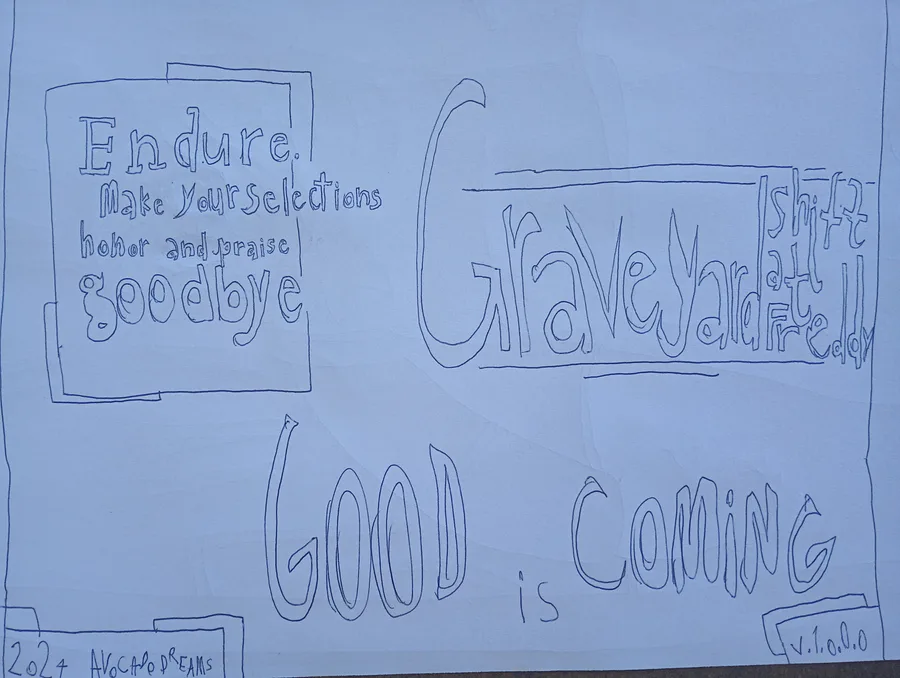 Endure.
Make your selections
honor and praise
goodbye
Graveyard
shift
at
Freddy
GOOD
is
COMiNG
2024 AVOCADO DREAMS
v.1.0.0.0